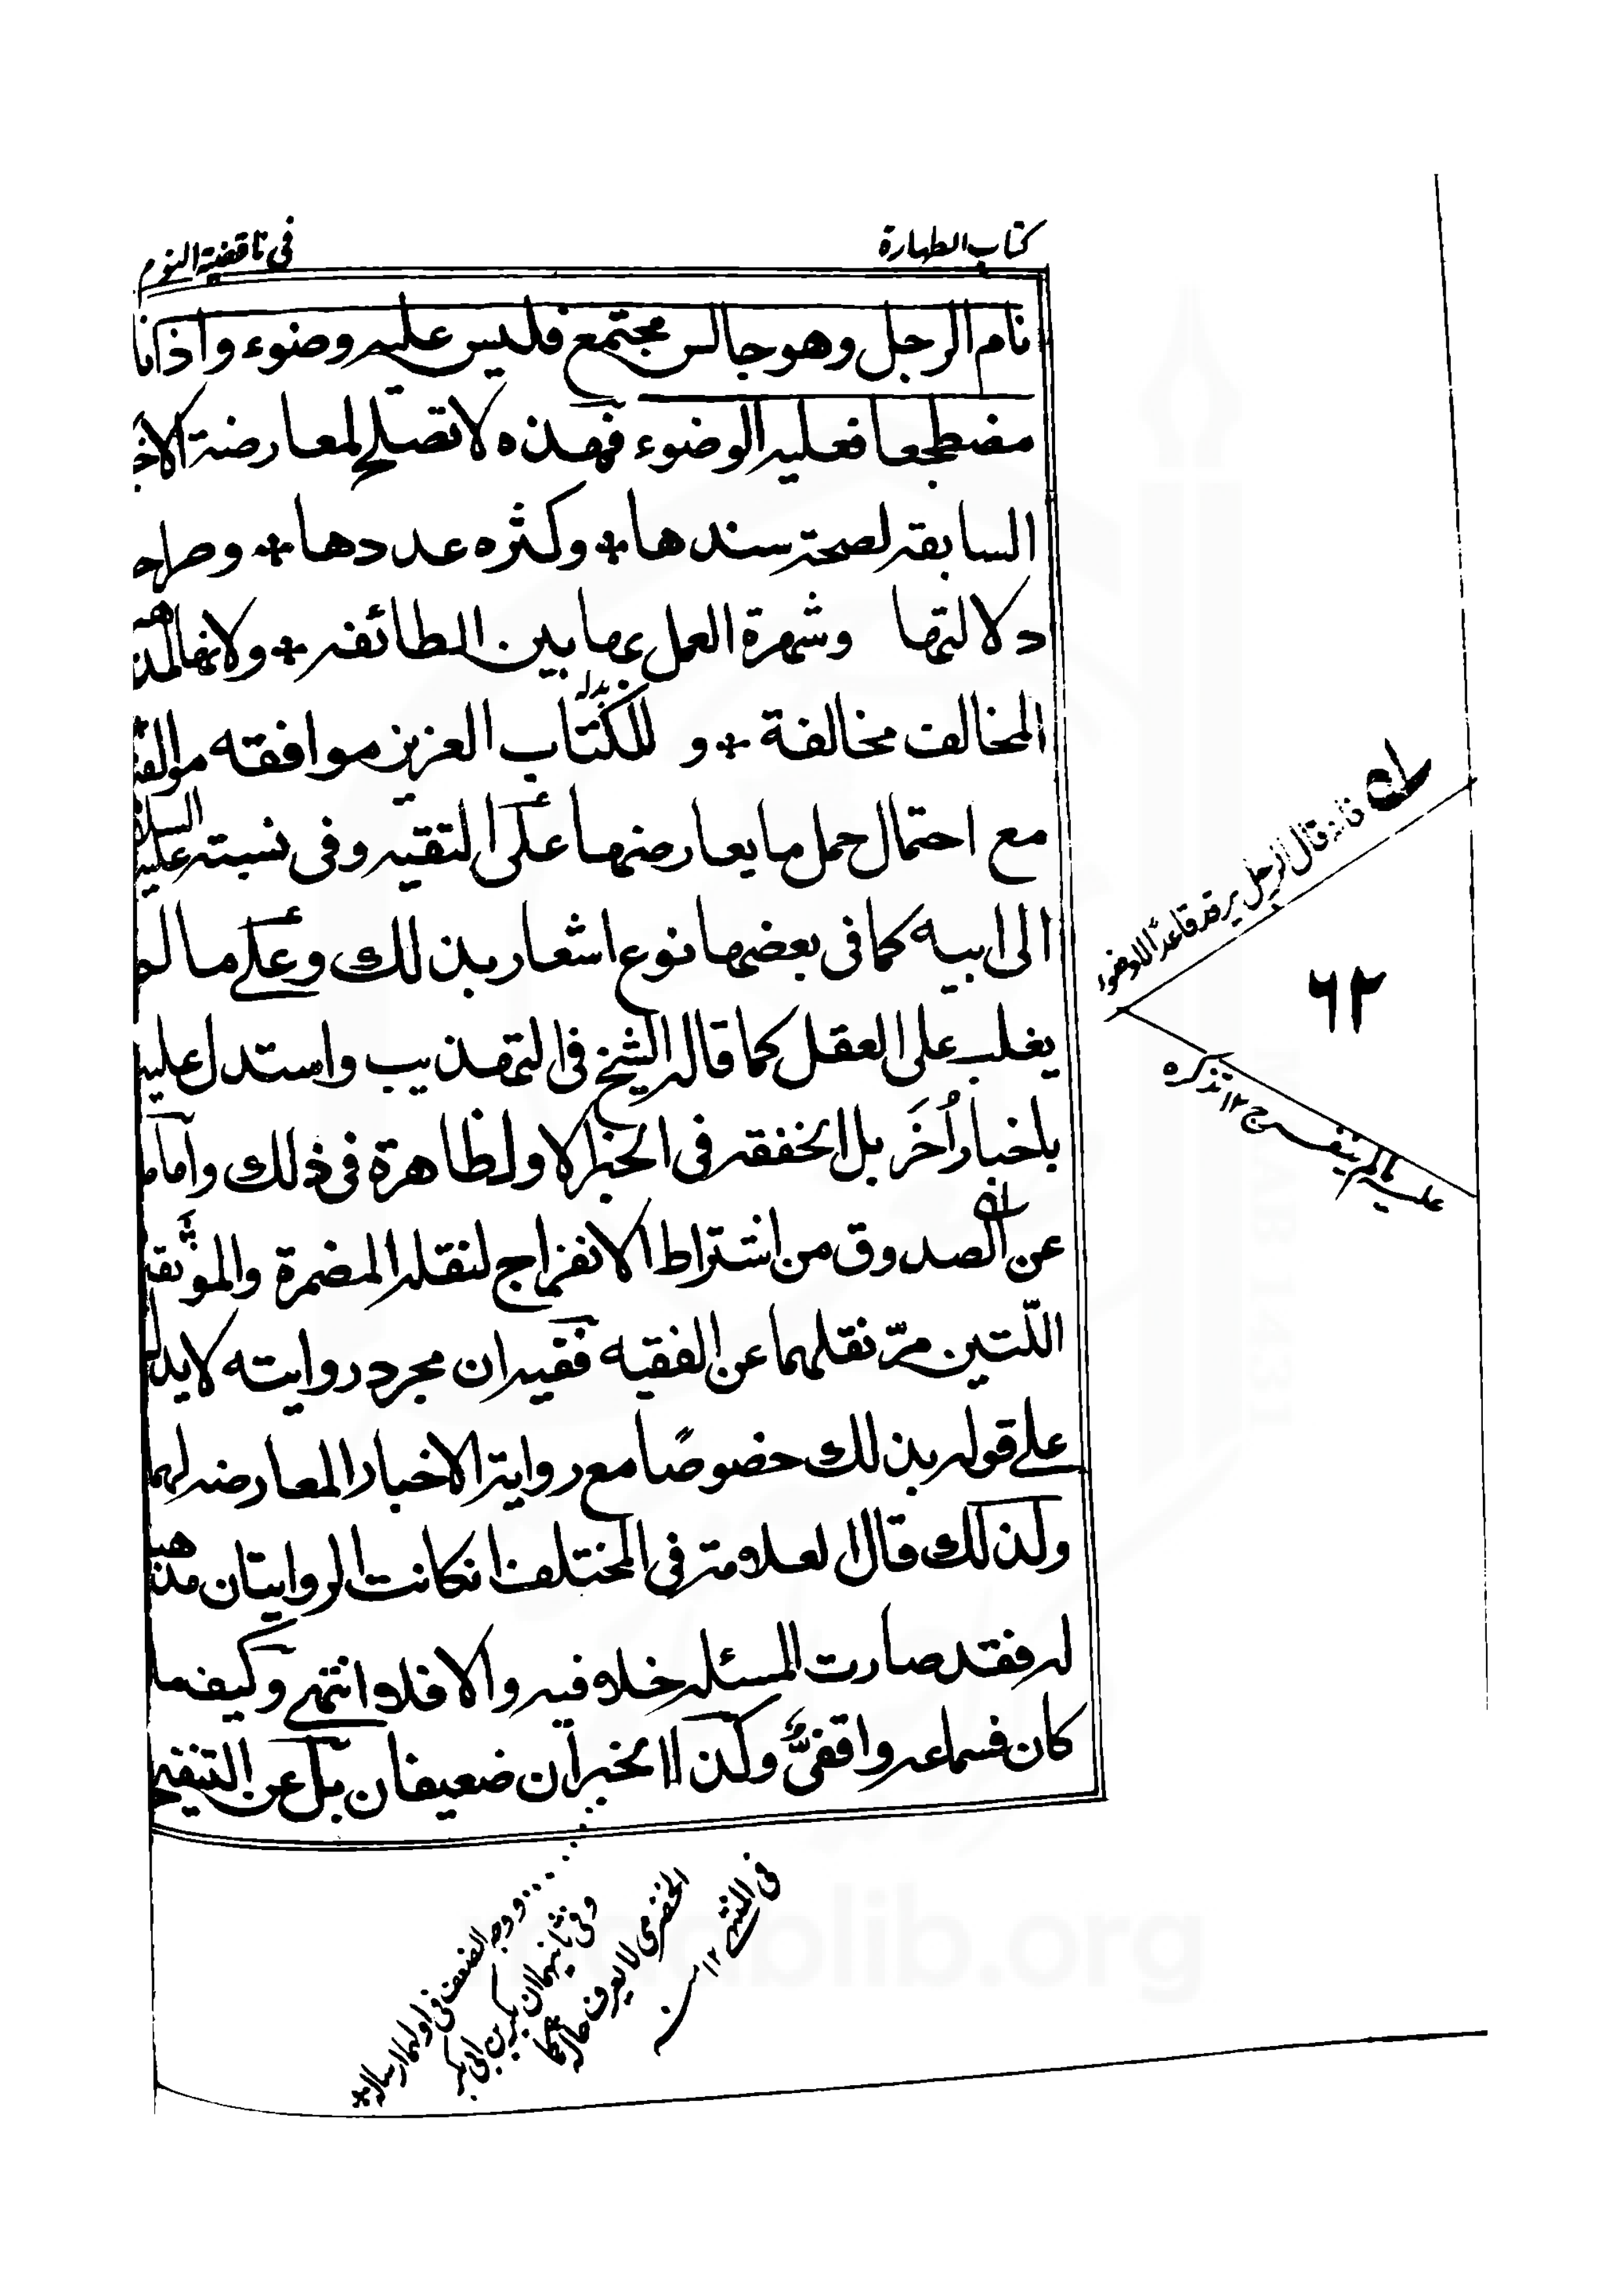 كتاب الطهارة
فى ناقضية النوم
نام الرجل وهو جالس مجتمع فليس عليه وضوء واذا نا
مضطجعا فعليه الوضوء فهذه لا تصلح لمعارضة الاخ
السابقه لصحة سندها * وكثره عددها * وصراحـ
دلالتها وشهرة العمل بها بين الطائفه * ولانها لمذهب
المخالف مخالفة * و للكتاب العزيز موافقه
مع احتمال حمل ما يعارضها على التقيه وفى نسبته عليه السلام
الى ابيه كما فى بعضها نوع اشعار بذلك وعلى ما لم
يغلب على العقل كما قاله الشيخ فى التهذيب واستدل عليه
باخبار أُخَر بل الخفقه فى الخبر الاول ظاهرة فى ذلك واما ما
عن الصدوق من اشتراط الانفراج لنقله المضمرة والموثقة
اللّتين مرّ نقلهما عن الفقيه ففيه ان مجرد روايته لا يدل
على قوله بذلك خصوصًا مع رواية الاخبار المعارضه لهما
ولذلك قال العلامة فى المختلف ان كانت الروايتان مذهب
له فقد صارت المسئله خلافيه والا فلا انتهى وكيف ما
كان فسماعه واقفىٌّ وكذا الخبران ضعيفان بل عن التنقيح
ط٥ فانه قال الرجل يرقد قاعدًا لا وضوء
عليه ما لم ينفرج ١٢ تذكره
٦٢
ووجه الضعف فى اولهما ارساله *
وفى ثانيهما ان بكر بن ابى بكر
الحضرمى لا يعرف حاله كما
فى المنتهى ١٢ منه